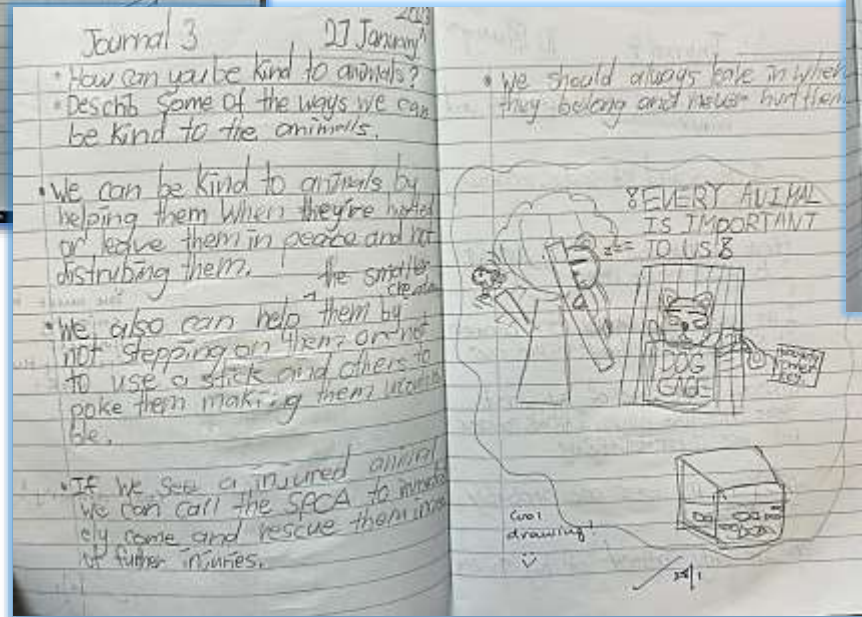 Journal 3
27 January
2023
• How can you be kind to animals?
• Describ some of the ways we can
be kind to the animalls.
• We can be kind to animals by
helping them when they're
or leave them in peace and not
distrubing them.
the smaller
• We also can help them by
not stepping on them or not
to use a stick and others to
poke them making them
ble.
• If we see a injured animal
we can call the SPCA to
ely come and rescue them
of futher injuries.
• We should always in
they belong and never hurt them
8 EVERY ANIMAL
IS IMPORTANT
TO US 8
zzz
DOG
CAGE
Cool
drawing!